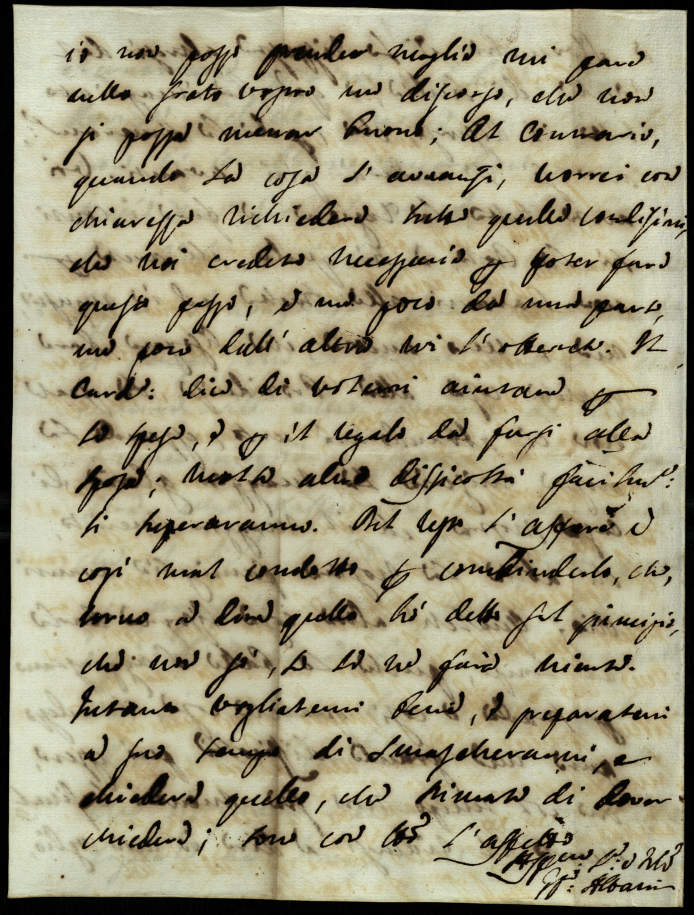 io non posso prender moglie mi pare
nello stato vostro un discorso, che non
si possa menar buono; Al contrario,
quando la cosa s'avanzi, vorrei con
chiarezza richiedere tutte quelle condizioni,
che voi credete necessarie per poter fare
questo passo, e un poco da una parte,
un poco dall'altra si s'otterrà. Il
Card: dice di volervi aiutare per
le spese, e per il regalo da farsi alla
sposa; molte altre difficoltà facilm:
si supereranno. Del resto l'affare è
così mal condotto per concluderlo, che,
torno a dire quello hò detto sul principio,
che non sò, se se ne farà niente.
Intanto vogliatemi bene, e preparatevi
a suo tempo di smascherarvi, e
chiedere quello, che stimate di dover
chiedere; sono con tto l'affetto
Albani